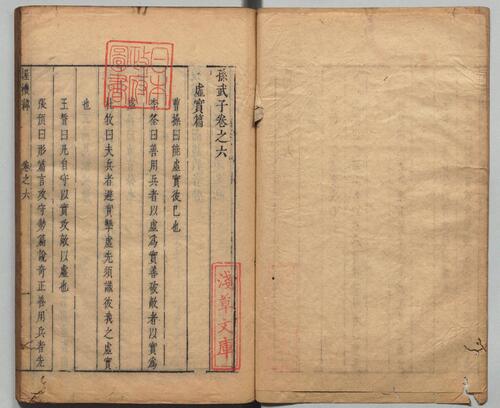 孫武子卷之六
虛實篇
曹操曰能虛實彼己也
李筌曰善用兵者以虛為實善破敵者以實為
虛
杜牧曰夫兵者避實擊虛先須識彼我之虛實
也
王晳曰凡自守以實攻敵以虛也
張預曰形篇言攻守勢篇說奇正善用兵者先
卷之六
一
日本
政府
圖書
淺草文庫